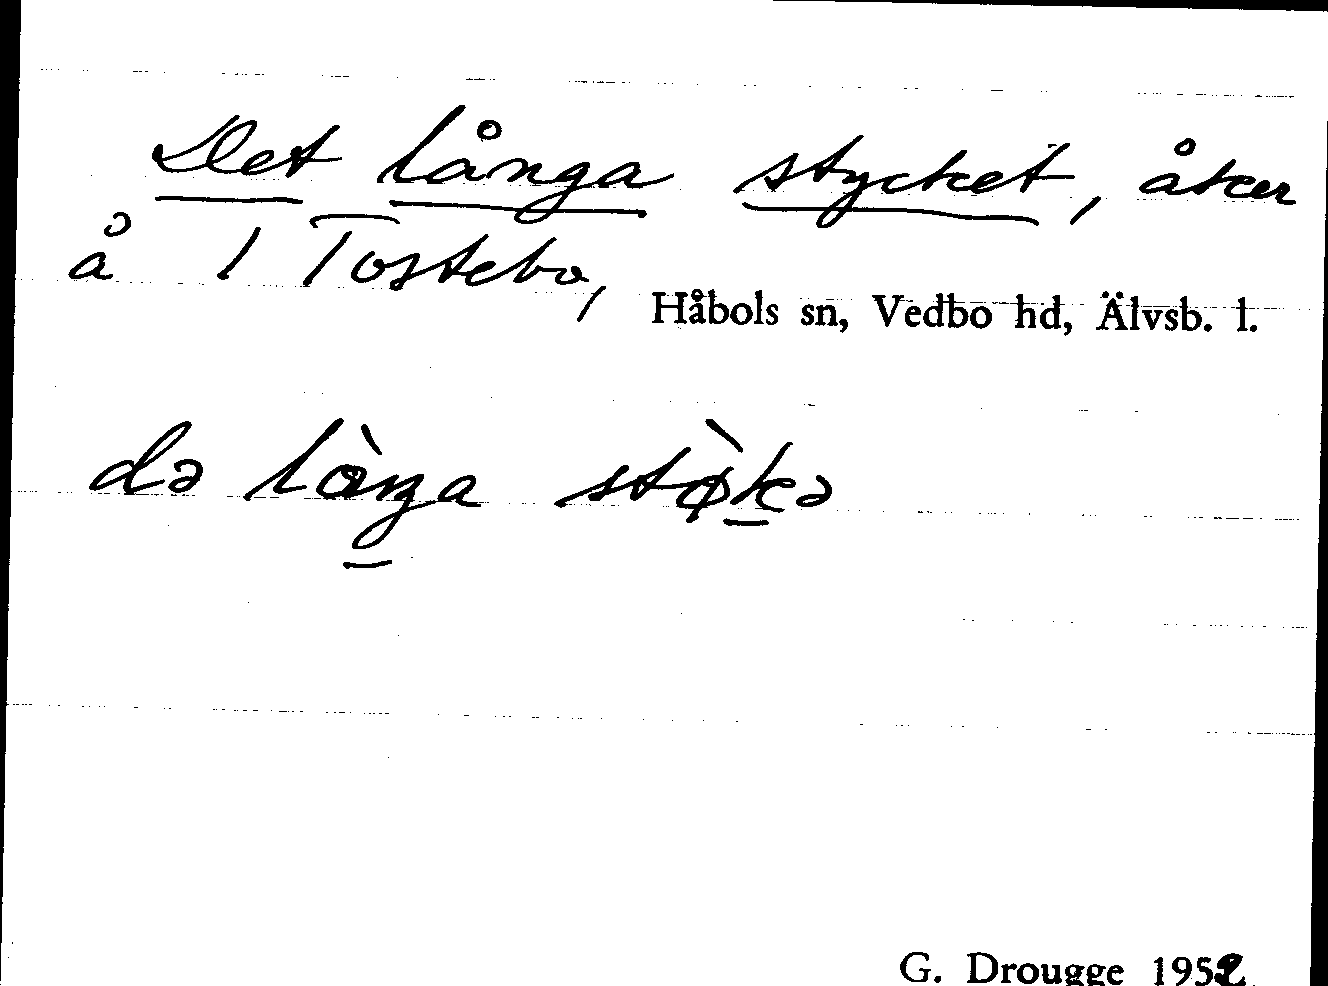 Det långa stycket, åker
å 1 Tostebo,
Håbols sn, Vedbo hd, Älvsb. l.
də lɑ̀ŋa stø̀kə
G. Drougge 1952